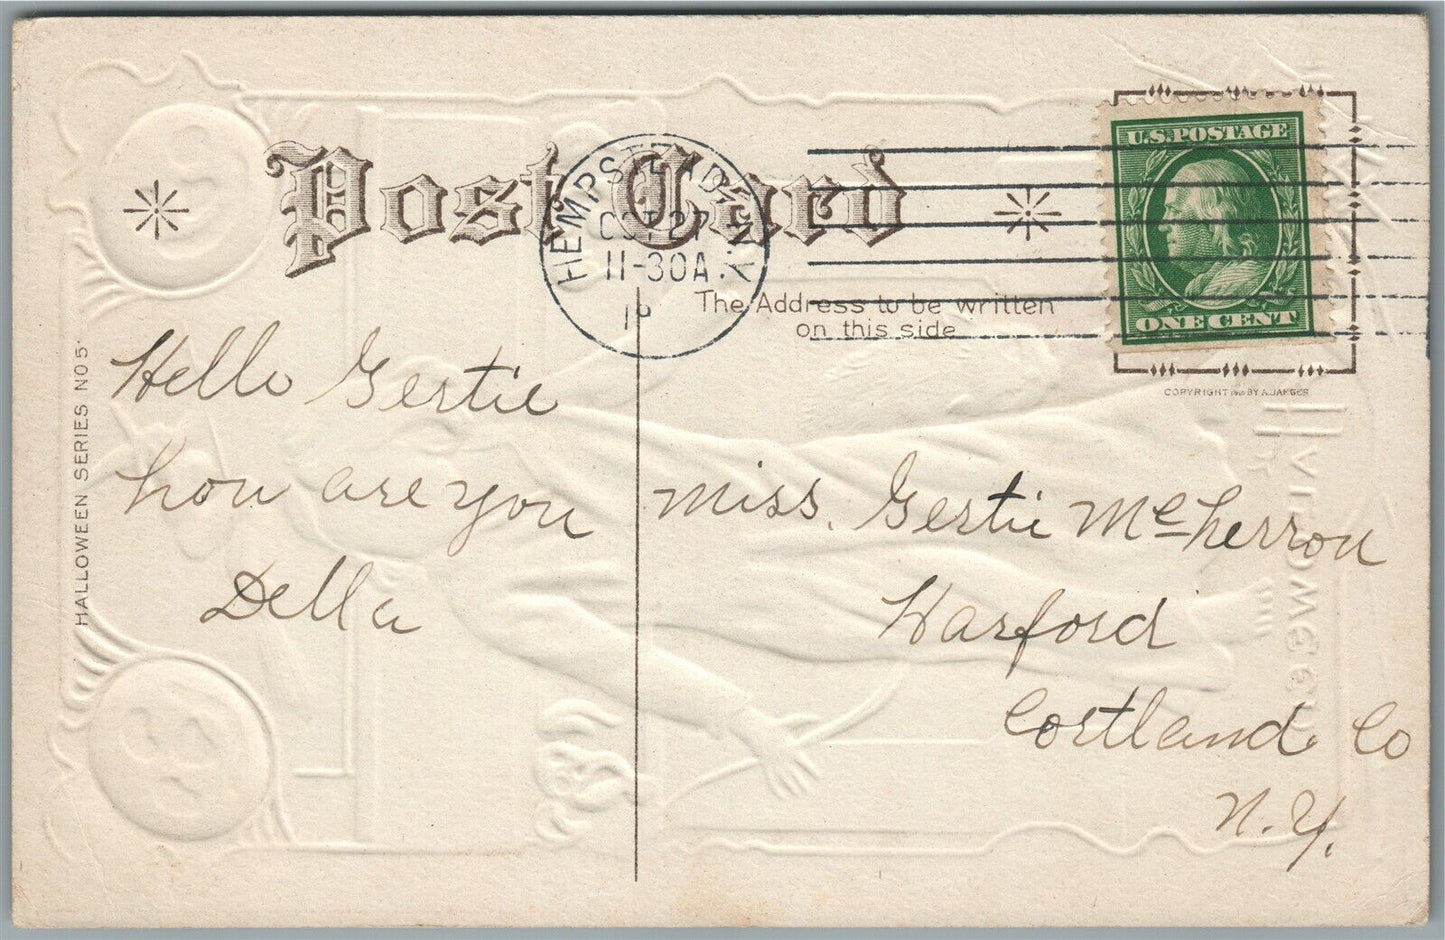 Post Card
U.S. POSTAGE
ONE CENT
HEMPSTEAD, N.Y.
OCT 27
11-30A.
19
The Address to be written
on this side
COPYRIGHT BY A. JAEGER
HALLOWEEN SERIES NO 5.
Hello Gertie
how are you
Della
Miss. Gertie McHerron
Harford
Cortland Co
N.Y.